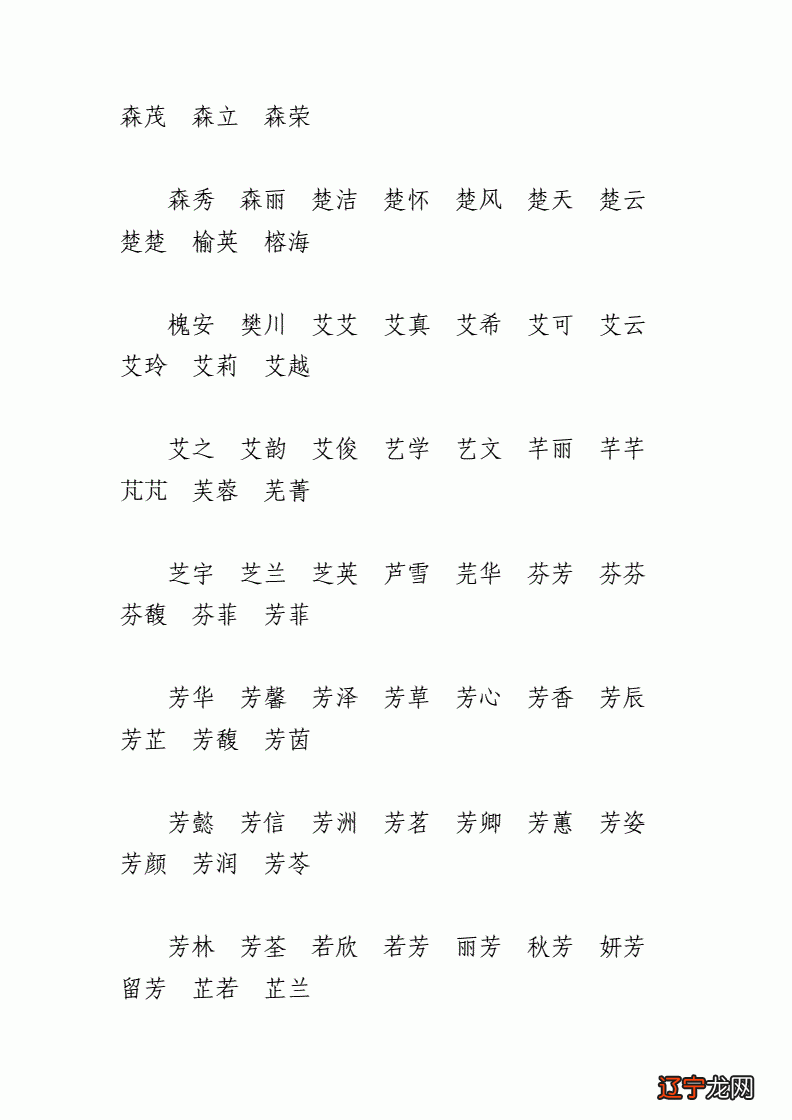 森茂 森立 森荣
森秀 森丽 楚洁 楚怀 楚风 楚天 楚云
楚楚 榆英 榕海
槐安 樊川 艾艾 艾真 艾希 艾可 艾云
艾玲 艾莉 艾越
艾之 艾韵 艾俊 艺学 艺文 芊丽 芊芊
芃芃 芙蓉 芜菁
芝宇 芝兰 芝英 芦雪 芫华 芬芳 芬芬
芬馥 芬菲 芳菲
芳华 芳馨 芳泽 芳草 芳心 芳香 芳辰
芳芷 芳馥 芳茵
芳懿 芳信 芳洲 芳茗 芳卿 芳蕙 芳姿
芳颜 芳润 芳苓
芳林 芳荃 若欣 若芳 丽芳 秋芳 妍芳
留芳 芷若 芷兰
辽宁龙网